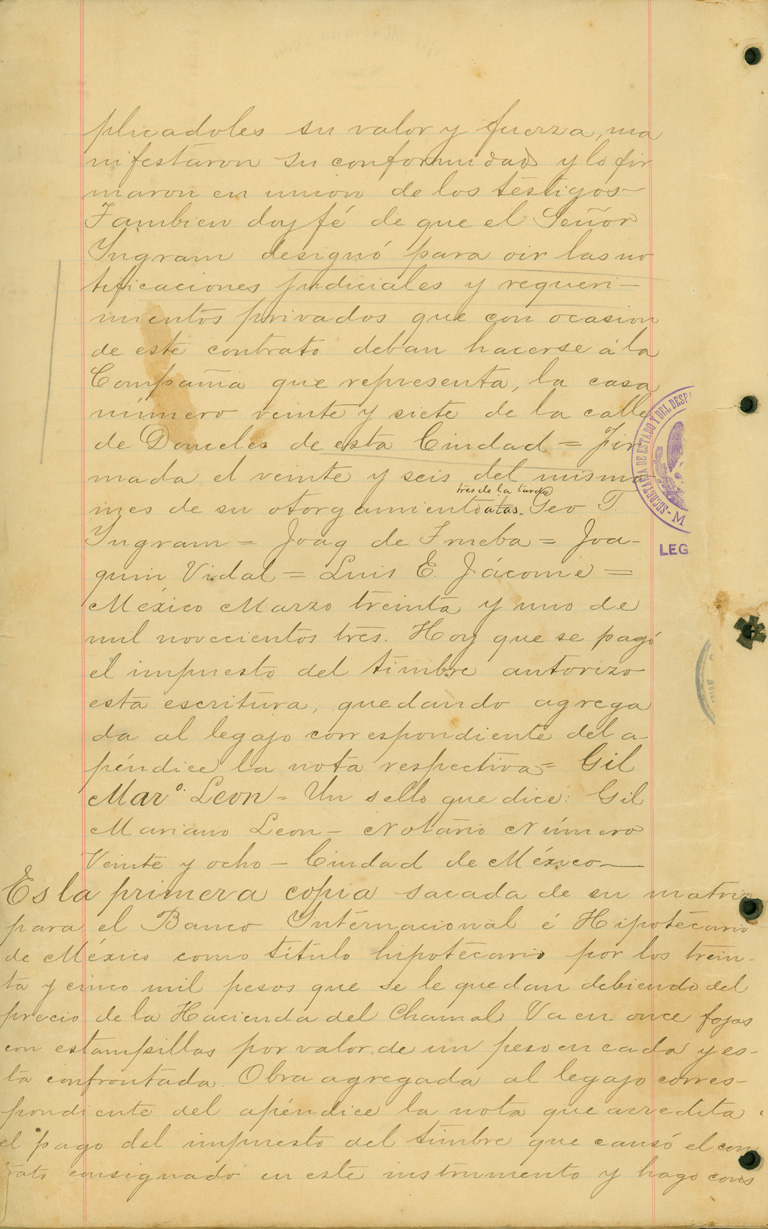 plicadoles su valor y fuerza, ma
nifestaron su conformidad y lo fir
maron en union de los testigos—
Tambien doy fé de que el Señor
Yngram designó para oir las no
tificaciones judiciales y requeri-
mientos privados que con ocasion
de este contrato deban hacerse á la
Compañia que representa, la casa
número veinte y siete de la calle
de Donceles de esta Ciudad = Fir
mada el veinte y seis del mismo
tres de la tarde
mes de su otorgamiento Geo T
Yngram = Joaq de Trueba = Joa-
quin Vidal = Luis E Jácome =
México Marzo treinta y uno de
mil novecientos tres. Hoy que se pagó
el impuesto del timbre autorizo
esta escritura, quedando agrega
da al legajo correspondiente del a-
péndice la nota respectiva = Gil
Marº. Leon - Un sello que dice: Gil
Mariano Leon - Notario Número
Veinte y ocho - Ciudad de México—
Es la primera copia sacada de su matriz
para el Banco Ynternacional é Hipotecario
de México como titulo hipotecario por los trein-
ta y cinco mil pesos que se le quedan debiendo del
precio de la Hacienda del Chamal Va en once fojas
con estampillas por valor de un peso en cada y es-
ta confrontada. Obra agregada al legajo corres-
pondiente del apéndice la nota que acredita
el pago del impuesto del timbre que causó el con
trato consignado en este instrumento y hago cons
SECRETARIA DE ESTADO Y DEL DESP
M
LEG